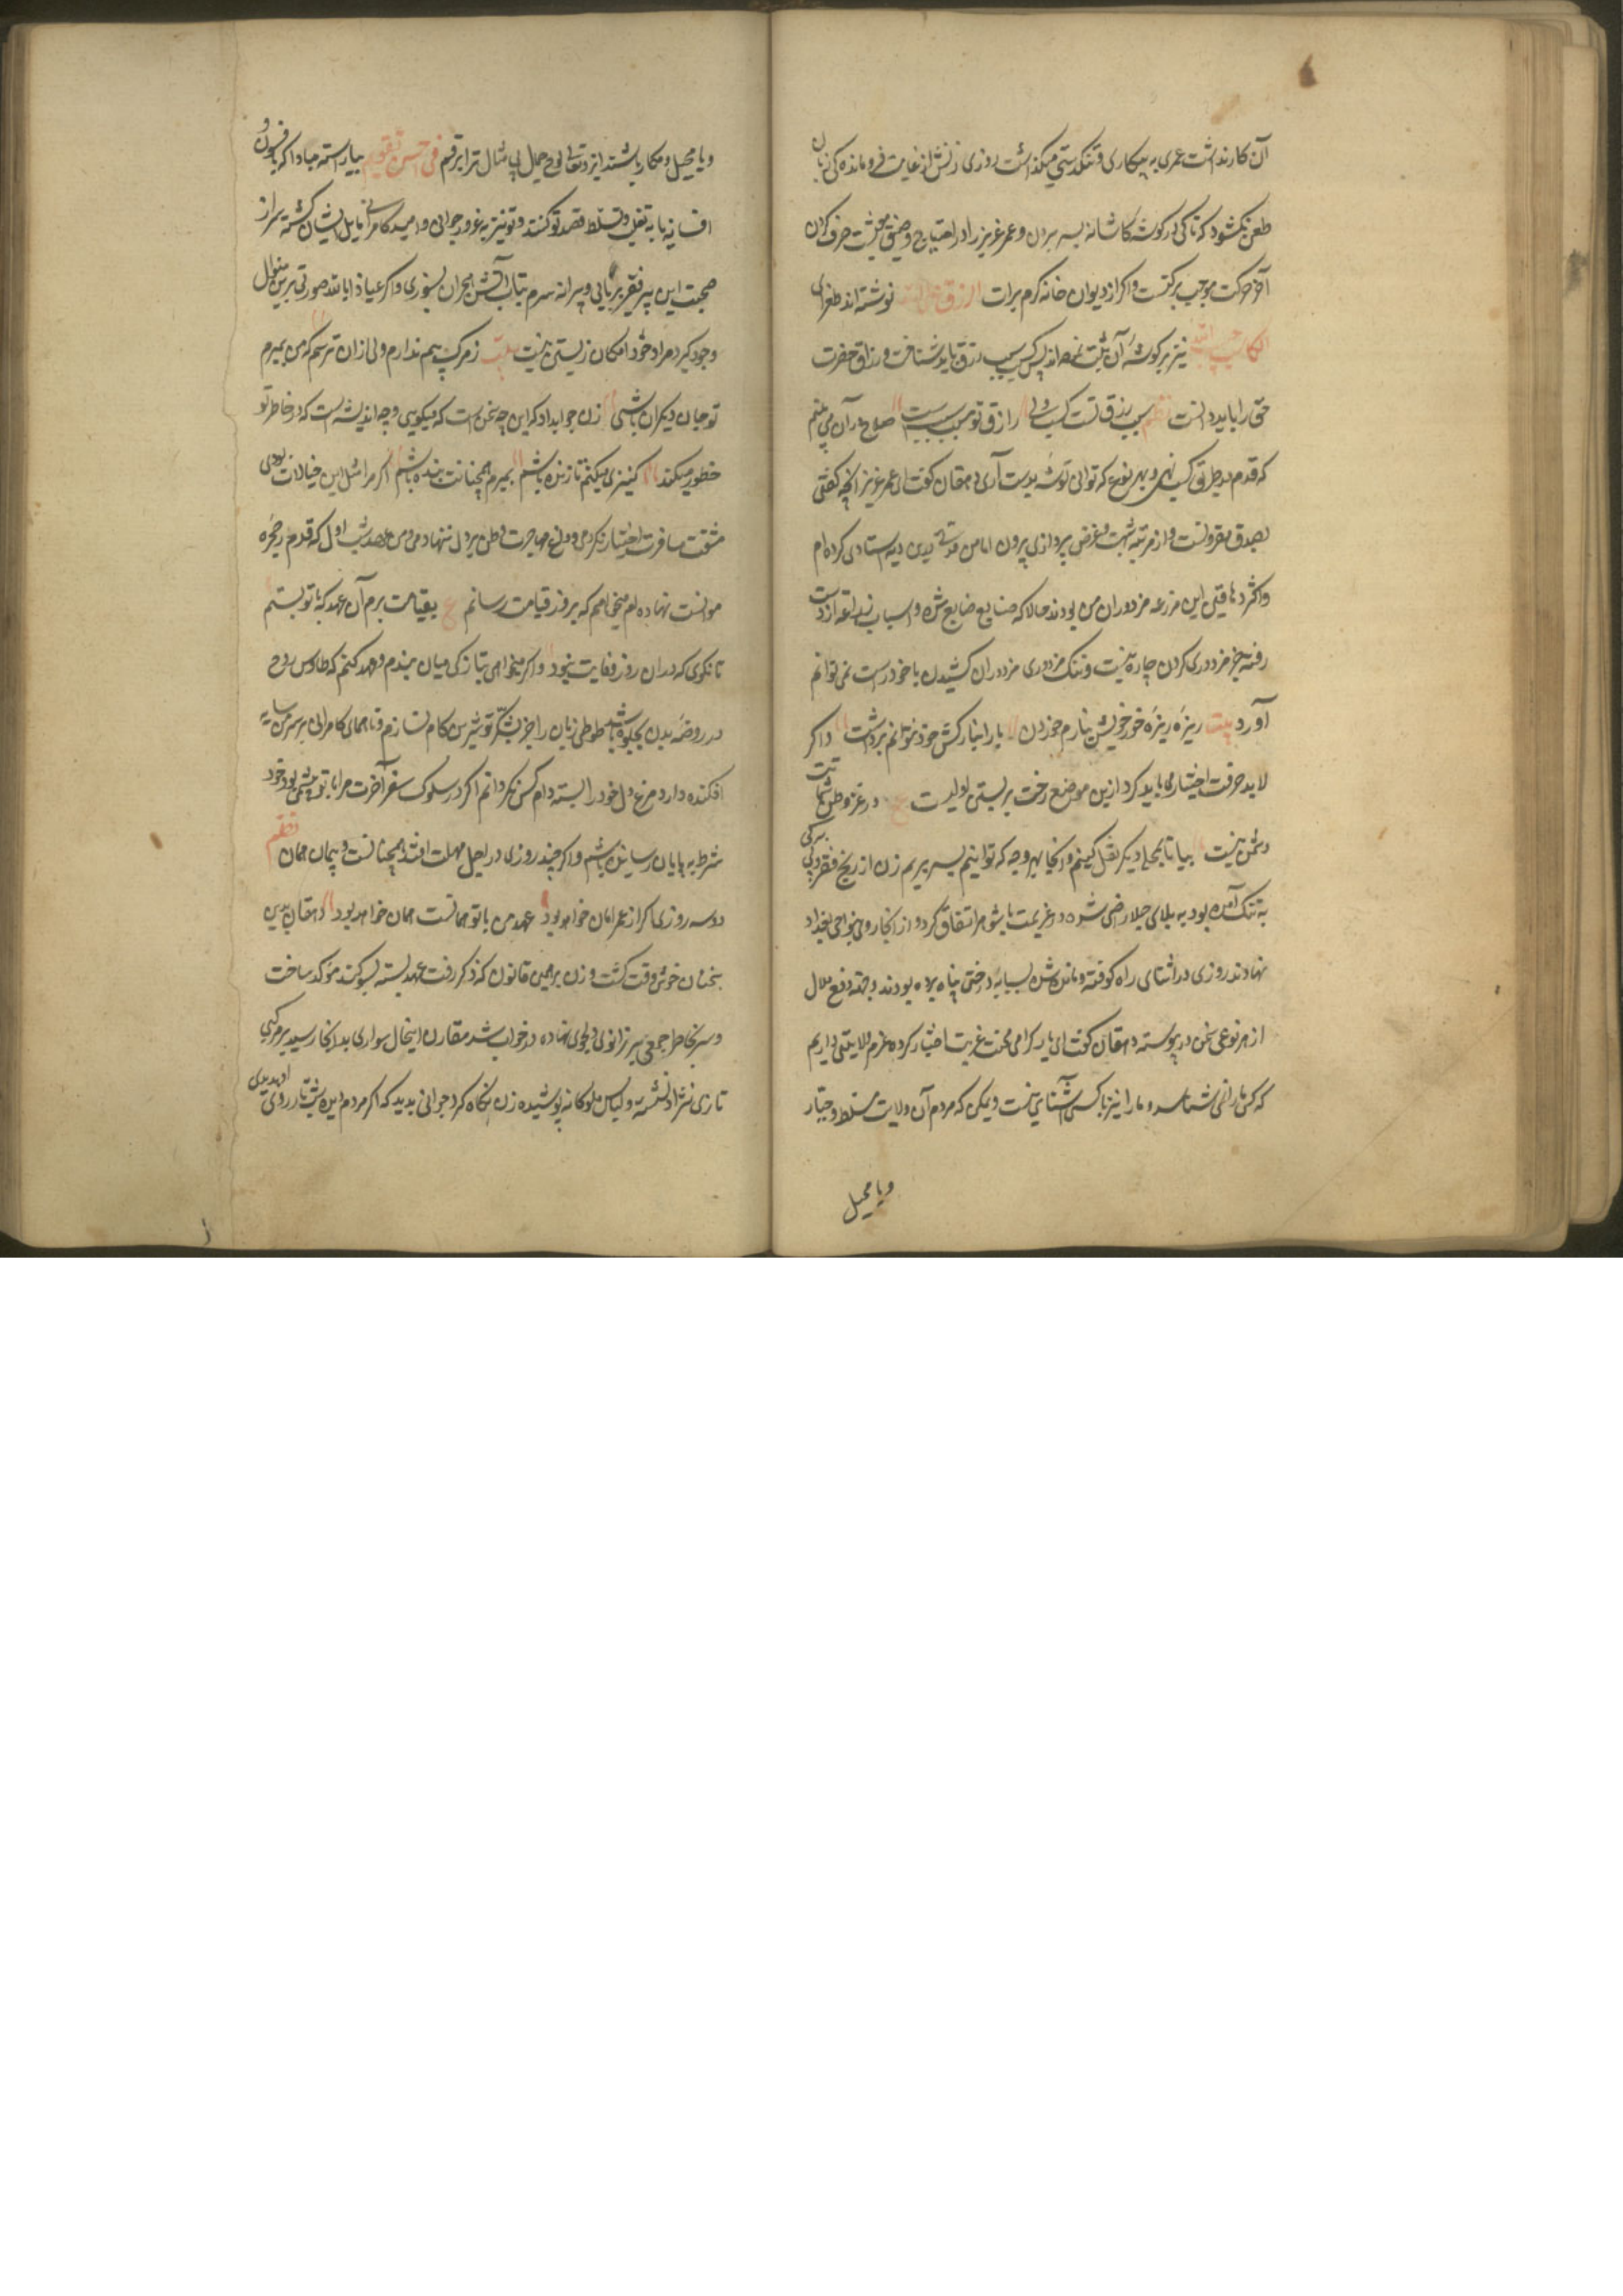 آن کار نداشت عمری به بیکاری و تنگدستی میگذاشت روزی زنش از غایت فروماندگی زبان
طعن بگشود که تا کی در گوشه کاشانه بسر بردن و عمر عزیز را در احتیاج و ضیق معیشت صرف کردن
آخر حرکت موجب برکتست و اگر از دیوان خانه کرم برات الرزق علی الله نوشته اند طغرای
الکاسب حبیب الله نیز بر گوشه آن ثبت نموده اند پس بسبب رزق باید شتافت و رزاق حضرت
حق را باید دانست نظم سبب رزق تست کسب ولی رازق تو مسبب سببست صلاح در آن می بینم
که قدم در طریق کسب نهی و بهر نوع که توانی توشه بدست آری دهقان گفت ای عمر عزیز آنچه گفتی
بصدق مقرونست و از مرتبه شبهت و غرض پردازی بیرون اما من مدتی بدین دیه استادی کرده ام
و اکثر دهاقین این مزرعه مزدوران من بودند حالا که ضیاع ضایع شده و اسباب زراعت از دست
رفته جز مزدوری کردن چاره نیست و ننگ مزدوری مزدوران کشیدن با خود راست نمی توانم
آورد بیت ریزه ریزه خور خویش نیارم خوردن بار انبارکش خود نتوانم برداشت و اگر
لابد حرفت اختیار می باید کرد ازین موضع رخت بر بستن اولیست ع در غزو وطن شماتت
دشمن نیست بیا تا بمحل دیگر نقل کنیم و آنجا بهر وجه که توانیم بسر بریم زن از رنج فقر و بی برگی
به تنگ آمده بود به بلای جلا راضی شده در عزیمت با شوهر اتفاق کرد و از آنجا روی بنواحی بغداد
نهادند روزی در اثنای راه کوفته و مانده شده بسایه درختی پناه برده بودند و جهة دفع ملال
از هر نوعی سخن در پیوسته دهقان گفت ای یار گرامی محنت غربت اختیار کرده عزم ولایتی داریم
که کس ما را نمی شناسد و ما را نیز با کسی آشنایی نیست و یمکن که مردم آن ولایت مسلط و جبار
و یا محیل
و یا محیل و مکار باشند ایزد تعالی جمال بی مثال ترا برقم فی احسن تقویم بیاراسته مبادا که بافسون و
افسانه یا به تغلب و تسلط قصد تو کنند و تو نیز به غرور جوانی و امید کامرانی مایل ایشان گشته سر از
صحبت این پیر فقیر بر تابی و پیرانه سرم بتاب آتش هجران بسوزی و اگر عیاذا بالله صورتی برین منوال
وجود گیرد مرا خود امکان زیستن نیست بیت ز مرگ بیم ندارم ولی ازان ترسم که من بمیرم
تو جان دیگران باشی زن جواب داد که این چه سخن است که میگویی و چه اندیشه است که در خاطر تو
خطور میکند کنیزی میکنم تا زنده باشم بمیرم همچنانت بنده باشم اگر مرا مثل این خیالات بودی
مشقت مسافرت اختیار نکردمی و داغ مهاجرت وطن بر دل ننهادمی و من عهد شب اول که قدم در حجره
موانست نهاده ام میخواهم که بروز قیامت رسانم ع بقیامت برم آن عهد که با تو بستم
تا نگوی که دران روز وفایت نبود و اگر میخواهی بتازگی میان بندم و عهد کنم که طاوس روح
در روضه بدن بجلوه باشد طوطی زبان را جز بشکر تو شیرین کام نسازم و تا همای کامرانی بر سر من سایه
افکنده دارد مرغ دل خود را بسته دام کس نگردانم اگر در سلوک سفر آخرت مرا با تو پیشی بود خود
شرط به پایان رسانیده باشم و اگر چند روزی در اجل مهلت افتد همچنانست و پیمان همان نظم
دو سه روزی اگر از عمر امان خواهد بود عهد من با تو همانست همان خواهد بود دهقان بدین
سخنان خوش وقت گشت و زن بر همین قانون که ذکر رفت عهد بسته بسوگند مؤکد ساخت
و پیر بخاطر جمع سر بر زانوی دلجوی نهاده در خواب شد مقارن اینحال سواری بدانجا رسید بر مرکبی
تازی نژاد نشسته و لباس ملوکانه پوشیده زن نگاه کرد جوانی بدید که اگر مردم دیده شب تار روی او بدیدی